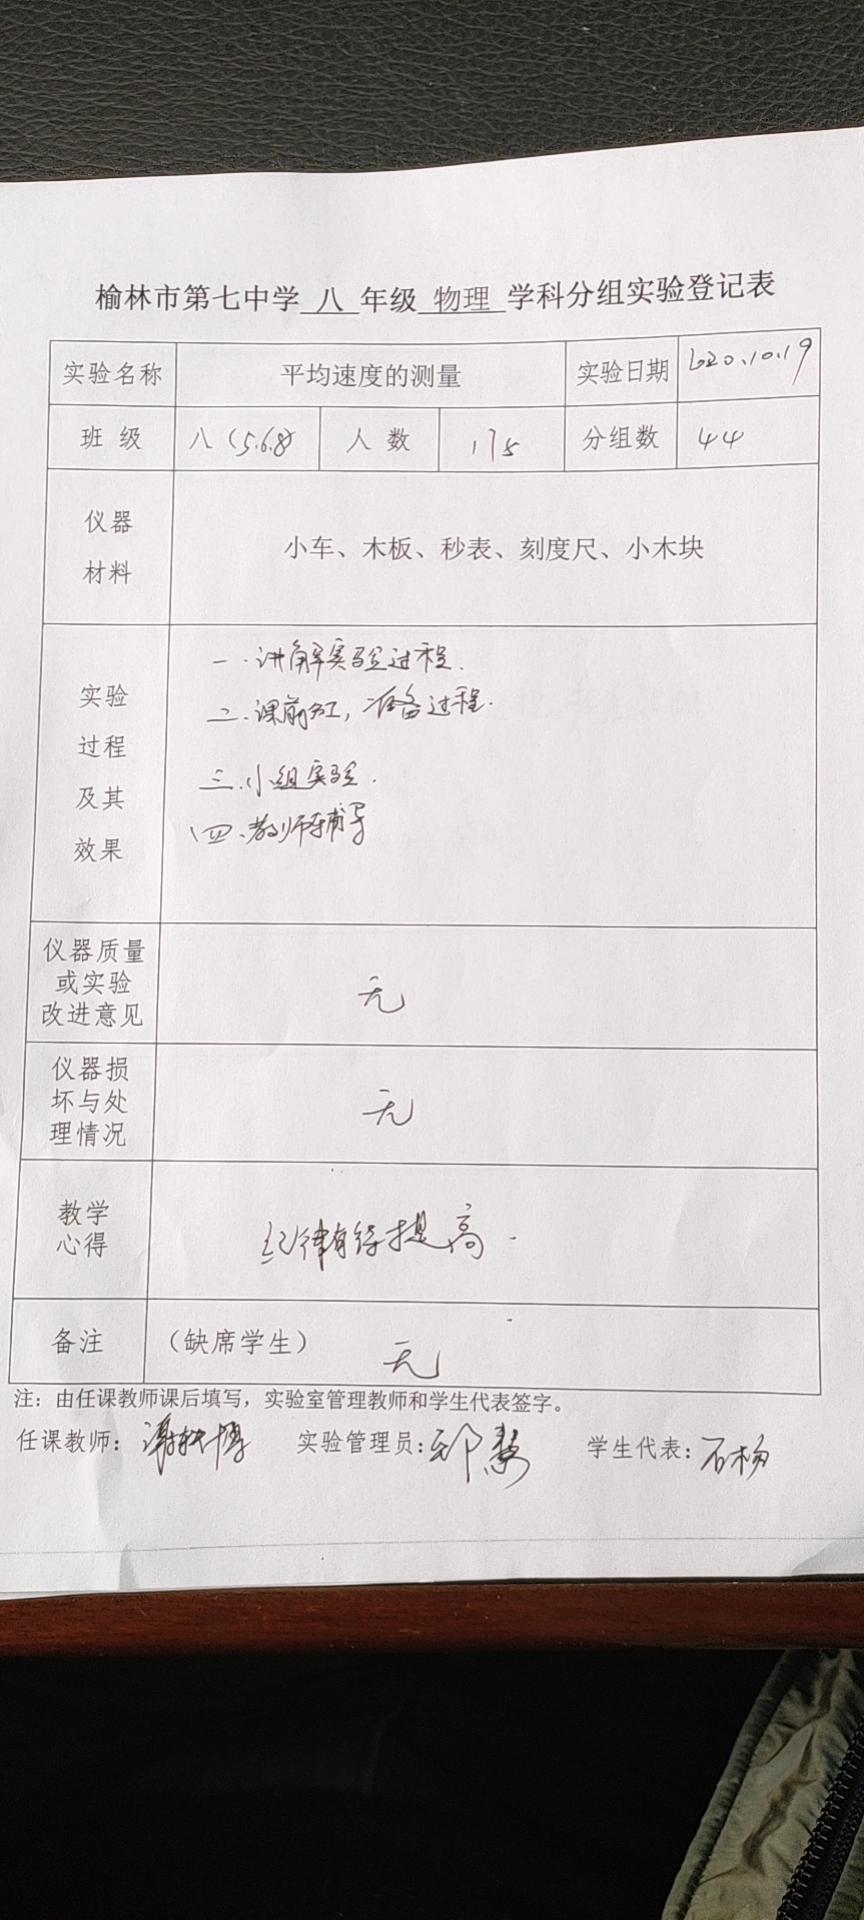 榆林市第七中学 八 年级 物理 学科分组实验登记表
实验名称 平均速度的测量 实验日期 2020.10.19
班 级 八(5.6.8) 人 数 175 分组数 44
仪器
材料
小车、木板、秒表、刻度尺、小木块
实验
过程
及其
效果
一.讲解实验过程.
二.课前分工，准备过程.
三.小组实验.
四.教师辅导
仪器质量
或实验
改进意见
无
仪器损
坏与处
理情况
无
教学
心得
纪律有待提高.
备注 （缺席学生） 无
注：由任课教师课后填写，实验室管理教师和学生代表签字。
任课教师： 实验管理员: 学生代表: 石杨